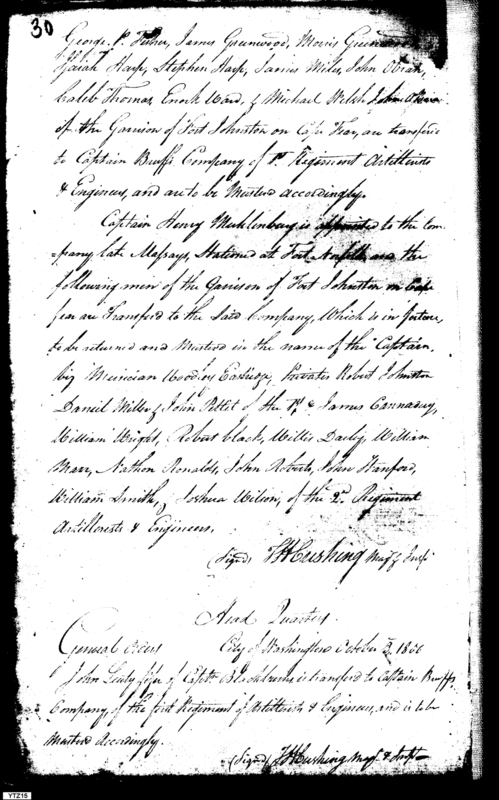 30
George P. Fisher, James Greenwood, Morris Greenwood
Isaiah Harp, Stephen Harp, James Miles, John Obrah,
Caleb Thomas, Enoch Ward, & Michael Welsh John
of the Garrison of Fort Johnston on Cape Fear, are transferd
to Captain Bruff's Company of 1st Regiment Artillerists
& Engineers, and are to be Mustered accordingly.
Captain Henry Muhlenberg is appointed to the Com-
-pany late Massays, Stationed at Fort Norfolk and the
following men of the Garrison of Fort Johnston on Cape
fear are Transferd to the Said Company, Which is in future,
to be returned and Mustered in the name of the Captain,
viz Musician Woodley Privates Robert Johnston
Daniel Miller & John Pettit of the 1st & James Cannaduy,
William Wright, Robert Clack, Willis Daily, William
Marr, Nathan Ronalds, John Roberts, John Stanford,
William Smith, & Joshua Wilson, of the 2nd Regiment
Artillerists & Engineers.
(Signd) T H Cushing Majr & Inspr
Head Quarters
General Orders City of Washington October 1800
John Leidy fifer of Captn Blackburns is transferd to Captain Bruffs
Company, of the first Regiment of Artillerists & Engineers, and is to be
Mustered Accordingly.
(Signd) T H Cushing Majr & Inspr
YTZ15